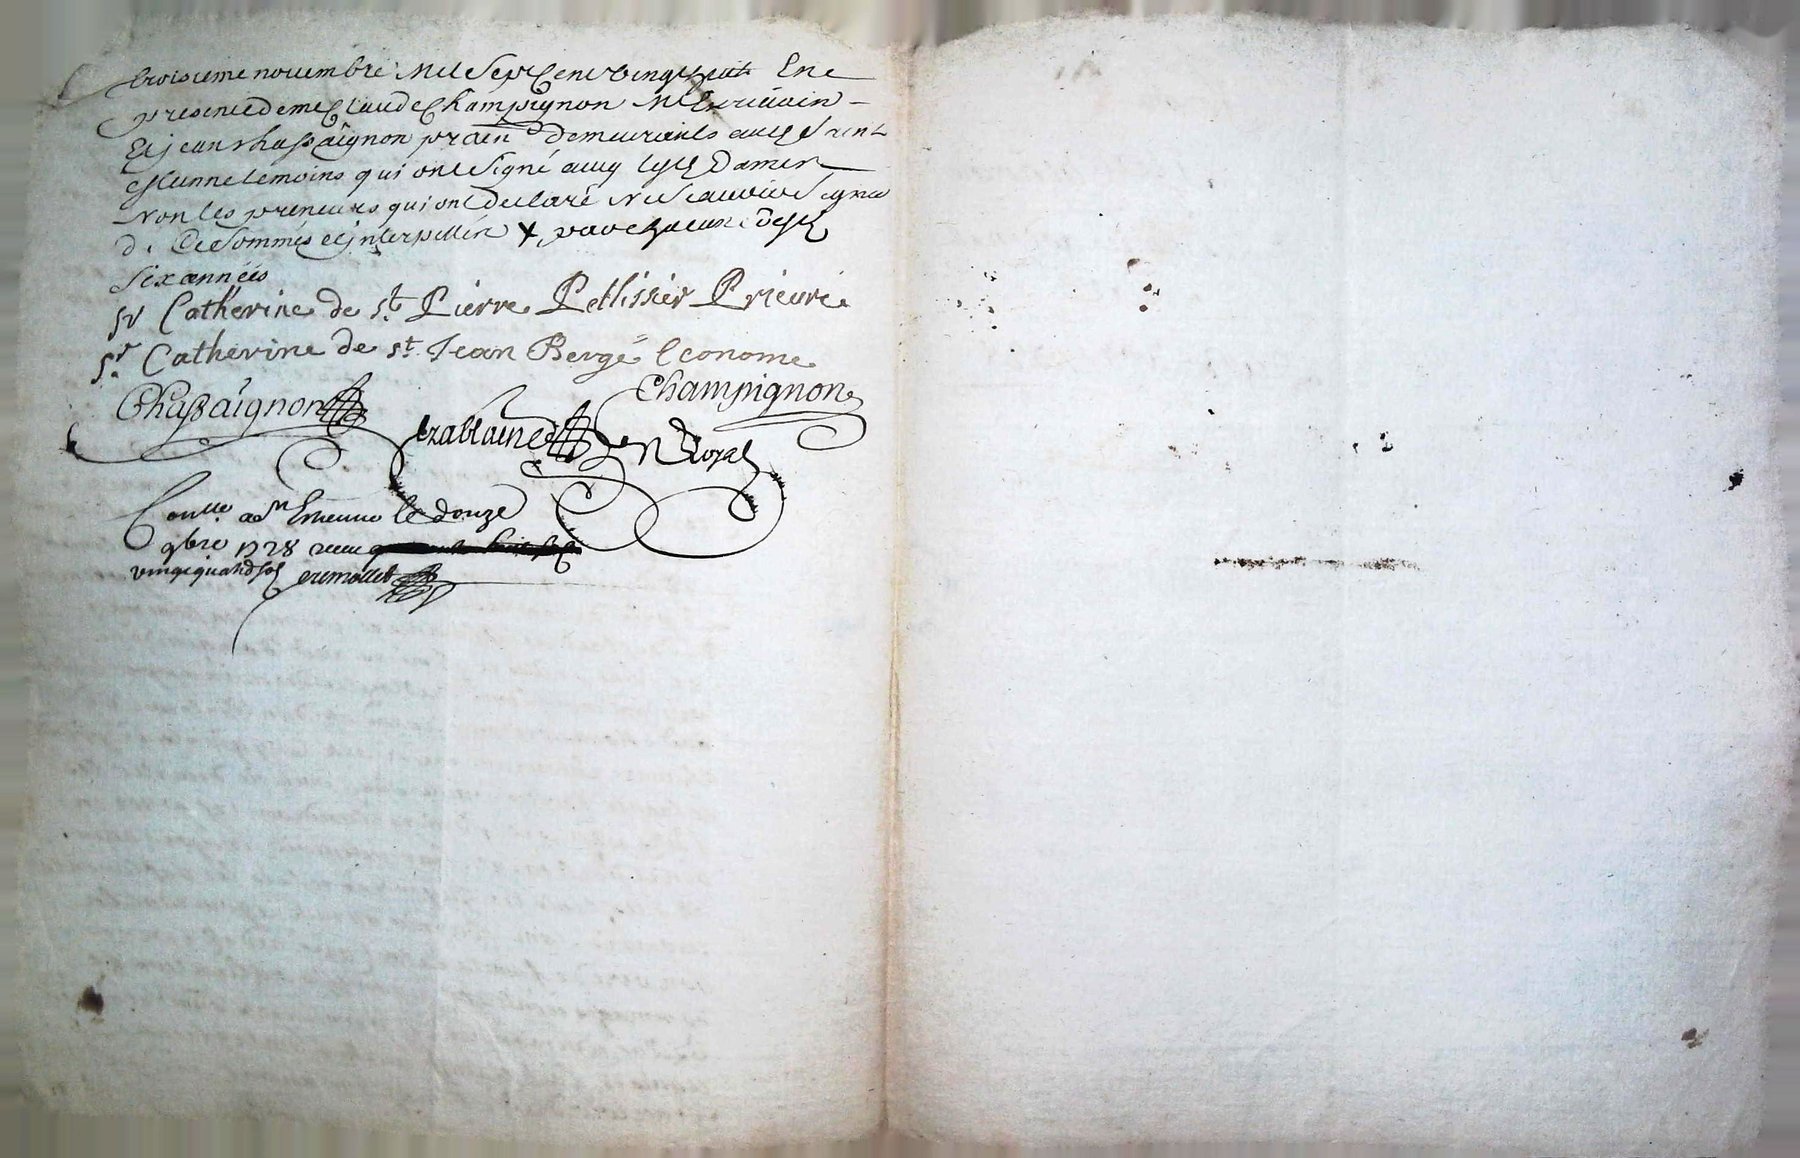 troisieme novembre Mil Sept Cent vingt huit En
presence de me Claude Champignon Me Ecrivain
Et jean Chassaignon pratn demeurants audt Saint
estienne temoins qui ont Signé avec lesd Dames
non les preneurs qui ont declaré ne Scavoir Signer
de ce Sommés et interpellés X pour chacune desd
Six années
Sr Catherine de st Pierre Pellissier Prieure
Sr Catherine de st Jean Bergé Econome
Chassaignon Champignon
nre Royal
Conlle a St Etienne le douze
9bre 1728 receu
vingt quatre sols